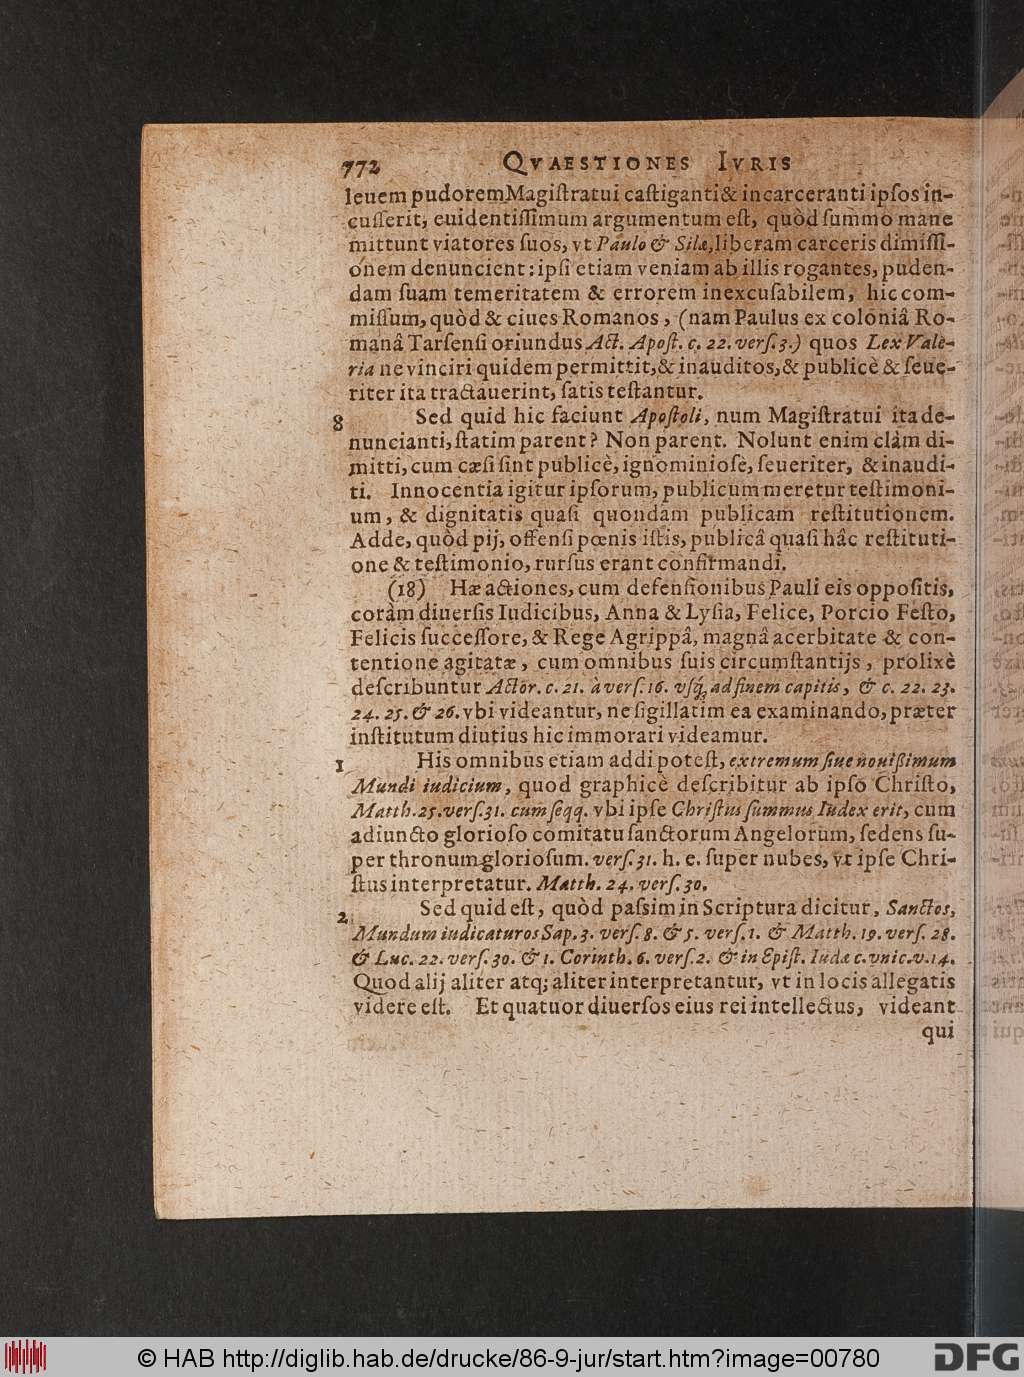 772 QVAESTIONES IVRIS
leuem pudorem Magiſtratui caſtiganti & incarceranti ipſos in-
cuſſerit, euidentiſſimum argumentum eſt, quòd ſummo mane
mittunt viatores ſuos, vt Paulo & Silæ, liberam carceris dimiſſi-
onem denuncient: ipſi etiam veniam ab illis rogantes, puden-
dam ſuam temeritatem & errorem inexcuſabilem, hic com-
miſſum, quòd & ciues Romanos, (nam Paulus ex coloniâ Ro-
manâ Tarſenſi oriundus Act. Apoſt. c. 22. verſ. 3.) quos Lex Vale-
ria ne vinciri quidem permittit, & inauditos, & publicè & ſeue-
riter ita tractauerint, ſatis teſtantur.
8 Sed quid hic faciunt Apoſtoli, num Magiſtratui ita de-
nuncianti, ſtatim parent? Non parent. Nolunt enim clàm di-
mitti, cum cæſi ſint publicè, ignominioſè, ſeueriter, & inaudi-
ti. Innocentia igitur ipſorum, publicum meretur teſtimoni-
um, & dignitatis quaſi quondam publicam reſtitutionem.
Adde, quòd pij, offenſi pœnis iſtis, publicâ quaſi hâc reſtituti-
one & teſtimonio, rurſus erant confirmandi.
(18) Hæ actiones, cum defenſionibus Pauli eis oppoſitis,
coràm diuerſis Iudicibus, Anna & Lyſia, Felice, Porcio Feſto,
Felicis ſucceſſore, & Rege Agrippâ, magnâ acerbitate & con-
tentione agitatæ, cum omnibus ſuis circumſtantijs, prolixè
deſcribuntur Actor. c. 21. à verſ. 16. vſq; ad finem capitis, & c. 22. 23.
24. 25. & 26. vbi videantur, ne ſigillatim ea examinando, præter
inſtitutum diutius hic immorari videamur.
1 His omnibus etiam addi poteſt, extremum ſiue nouißimum
Mundi iudicium, quod graphicè deſcribitur ab ipſo Chriſto,
Matth. 25. verſ. 31. cum ſeqq. vbi ipſe Chriſtus ſummus Iudex erit, cum
adiuncto glorioſo comitatu ſanctorum Angelorum, ſedens ſu-
per thronum glorioſum. verſ. 31. h. e. ſuper nubes, vt ipſe Chri-
ſtus interpretatur. Matth. 24. verſ. 30.
2 Sed quid eſt, quòd paſsim in Scriptura dicitur, Sanctos,
Mundum iudicaturos Sap. 3. verſ. 8. & 5. verſ. 1. & Matth. 19. verſ. 28.
& Luc. 22. verſ. 30. & 1. Corinth. 6. verſ. 2. & in Epiſt. Iudæ c. vnic. v. 14.
Quod alij aliter atq; aliter interpretantur, vt in locis allegatis
videre eſt. Et quatuor diuerſos eius rei intellectus, videant
qui
© HAB http://diglib.hab.de/drucke/86-9-jur/start.htm?image=00780 DFG